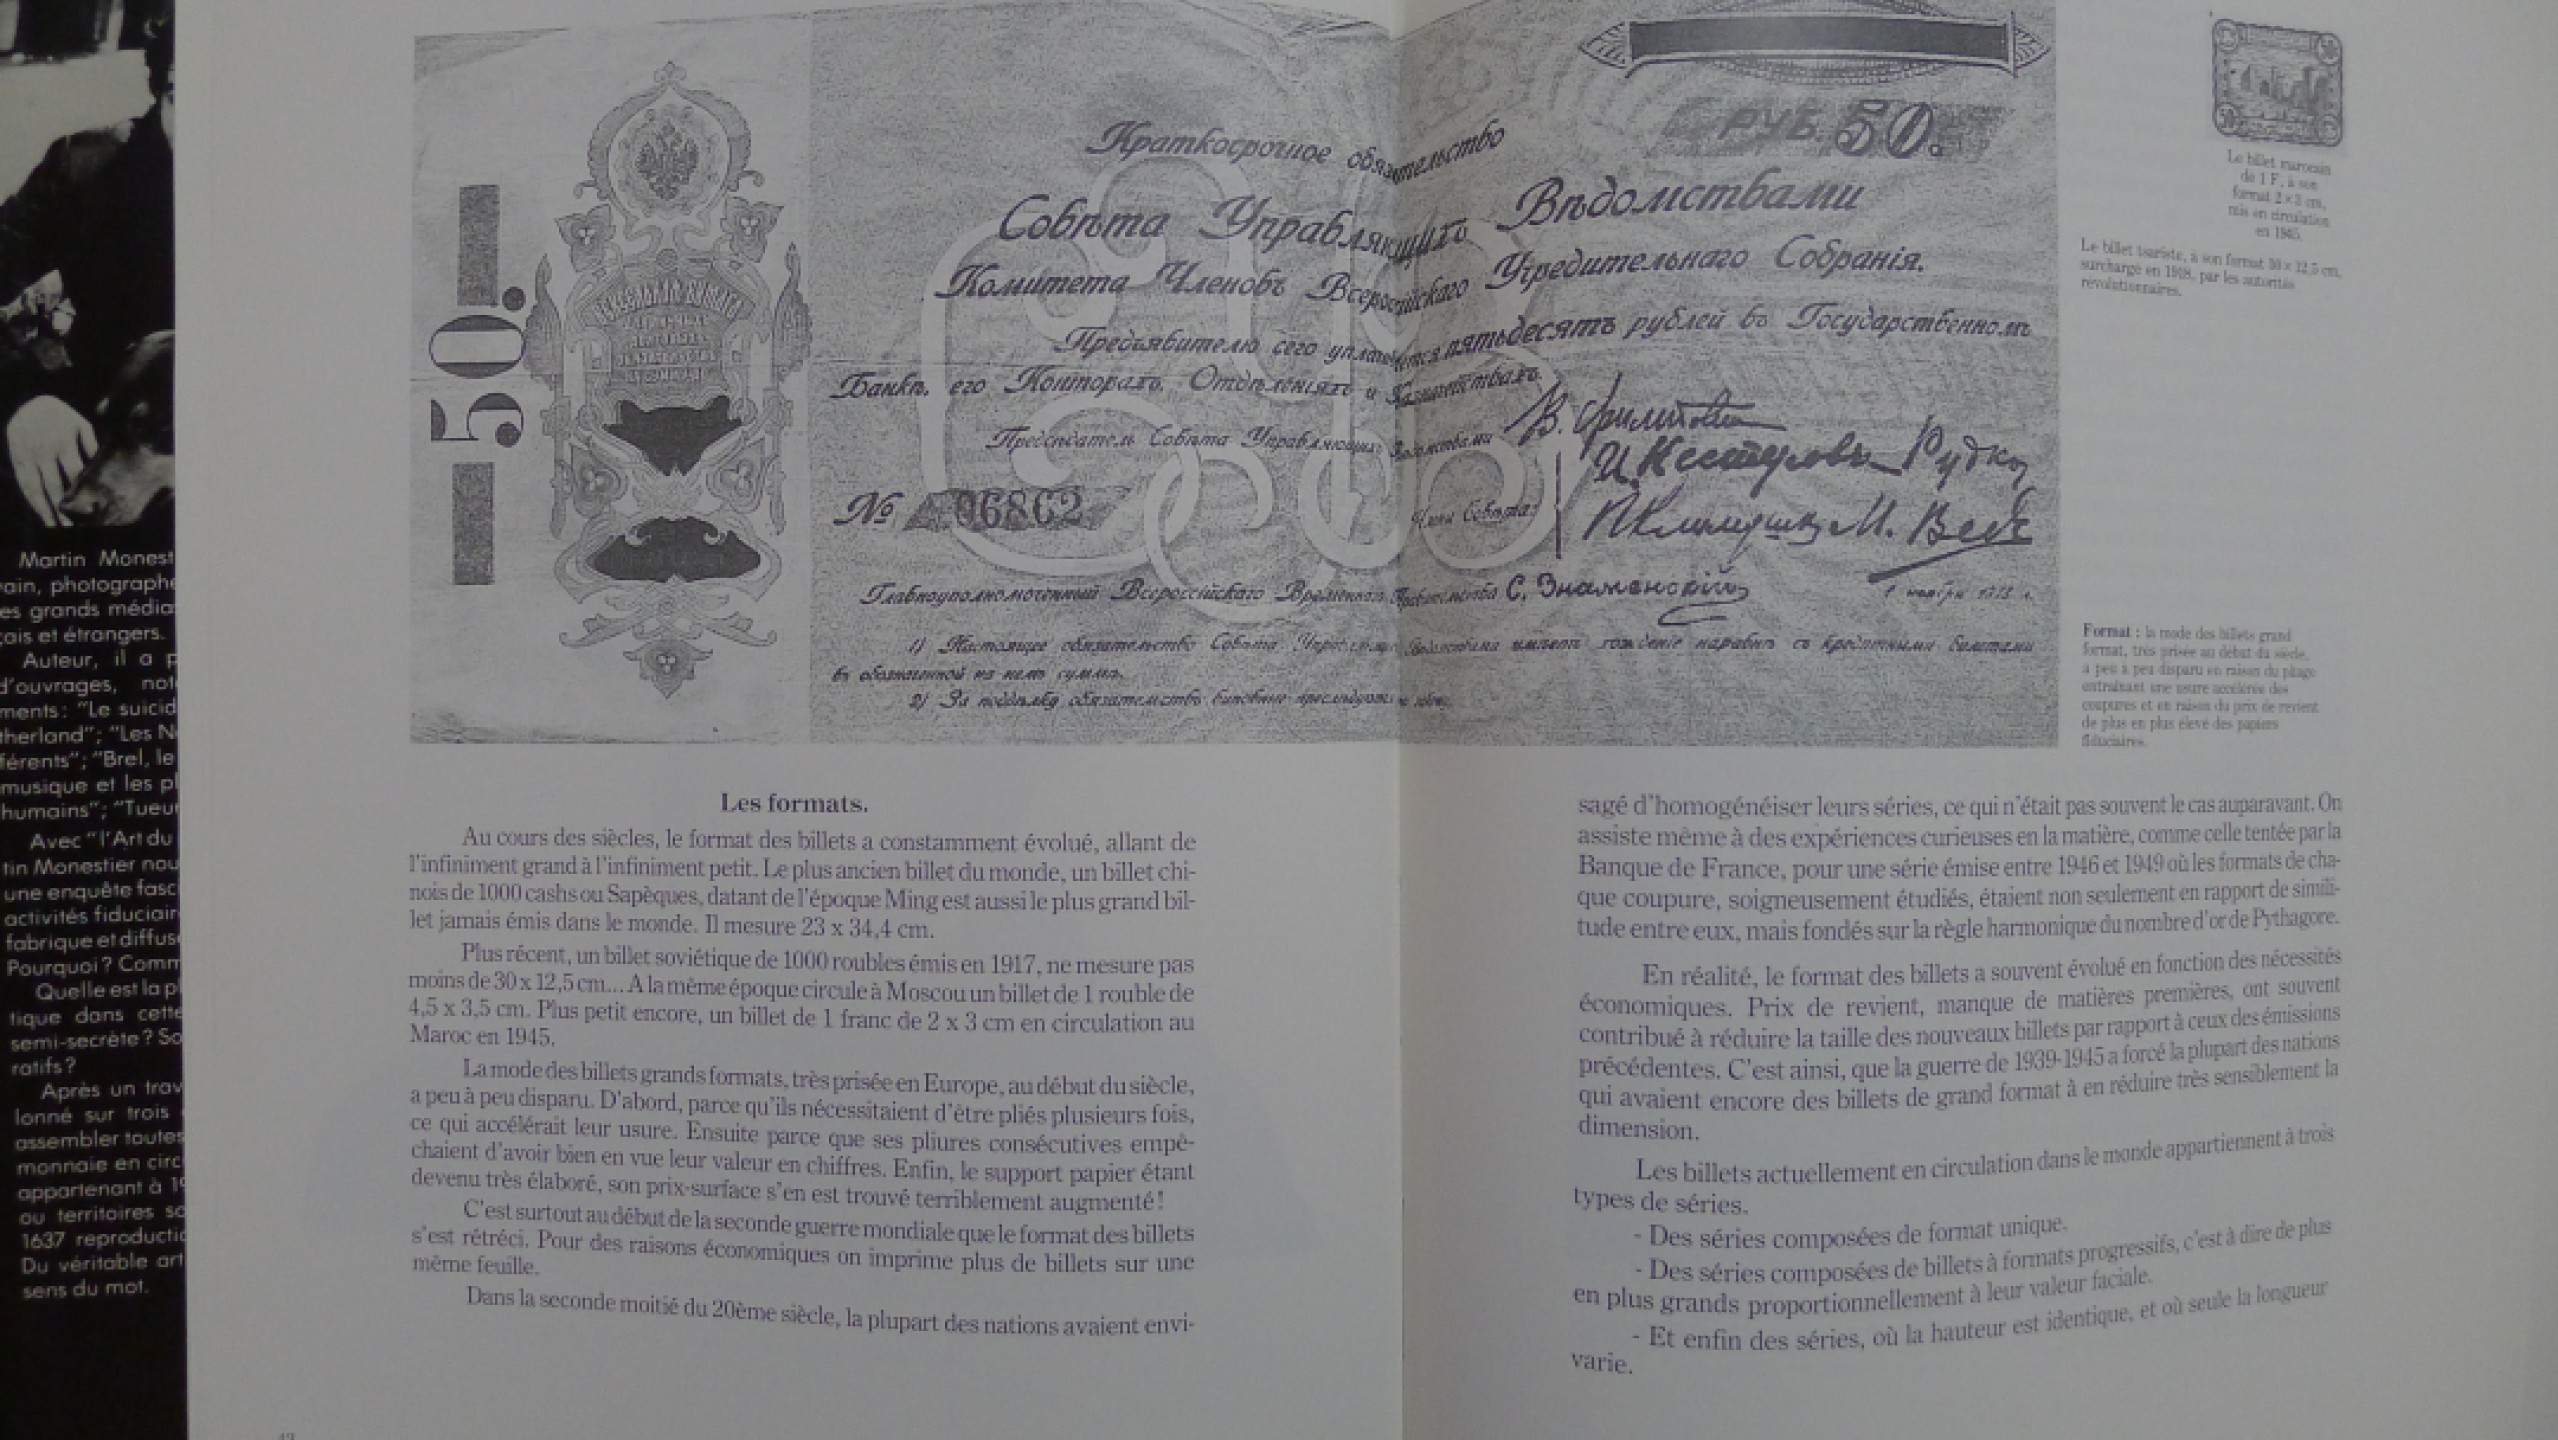 Martin Monest
ain, photographe
es grands média
çais et étrangers.
Auteur, il a p
d'ouvrages, not
ments: "Le suicid
therland"; "Les N
férents"; "Brel, le
musique et les pl
humains"; "Tueu
Avec "l'Art du
tin Monestier nou
une enquête fasc
activités fiduciair
fabrique et diffus
Pourquoi? Comm
Quelle est la p
tique dans cette
semi-secrète? So
ratifs?
Après un trav
lonné sur trois
assembler toutes
monnaie en circ
appartenant à 19
ou territoires so
1637 reproductio
Du véritable art
sens du mot.
50.
РУБ. 50.
Краткосрочное обязательство
Совѣта Управляющихъ Вѣдомствами
Комитета Членовъ Всероссійскаго Учредительнаго Собранія.
Предъявителю сего уплачивается пятьдесятъ рублей въ Государственномъ
Банкѣ, его Конторахъ, Отдѣленіяхъ и Казначействахъ.
Предсѣдатель Совѣта Управляющихъ Вѣдомствами
№ 06862
Члены Совѣта:
Главноуполномоченный Всероссійскаго Временнаго Правительства С. Знаменскій
1) Настоящее обязательство Совѣта Управляющихъ Вѣдомствами имѣетъ хожденіе наравнѣ съ кредитными билетами
въ обозначенной на немъ суммѣ.
2) За поддѣлку обязательствъ виновные преслѣдуются
Le billet marocain
de 1 F, à son
format 2 x 3 cm,
mis en circulation
en 1945.
Le billet tsariste, à son format 30 x 12,5 cm,
surchargé en 1918, par les autorités
révolutionnaires.
Format : la mode des billets grand
format, très prisée au début du siècle,
a peu à peu disparu en raison du pliage
entraînant une usure accélérée des
coupures et en raison du prix de revient
de plus en plus élevé des papiers
fiduciaires.
Les formats.
Au cours des siècles, le format des billets a constamment évolué, allant de
l'infiniment grand à l'infiniment petit. Le plus ancien billet du monde, un billet chi-
nois de 1000 cashs ou Sapèques, datant de l'époque Ming est aussi le plus grand bil-
let jamais émis dans le monde. Il mesure 23 x 34,4 cm.
Plus récent, un billet soviétique de 1000 roubles émis en 1917, ne mesure pas
moins de 30 x 12,5 cm... A la même époque circule à Moscou un billet de 1 rouble de
4,5 x 3,5 cm. Plus petit encore, un billet de 1 franc de 2 x 3 cm en circulation au
Maroc en 1945.
La mode des billets grands formats, très prisée en Europe, au début du siècle,
a peu à peu disparu. D'abord, parce qu'ils nécessitaient d'être pliés plusieurs fois,
ce qui accélérait leur usure. Ensuite parce que ses pliures consécutives empê-
chaient d'avoir bien en vue leur valeur en chiffres. Enfin, le support papier étant
devenu très élaboré, son prix-surface s'en est trouvé terriblement augmenté!
C'est surtout au début de la seconde guerre mondiale que le format des billets
s'est rétréci. Pour des raisons économiques on imprime plus de billets sur une
même feuille.
Dans la seconde moitié du 20ème siècle, la plupart des nations avaient envi-
sagé d'homogénéiser leurs séries, ce qui n'était pas souvent le cas auparavant. On
assiste même à des expériences curieuses en la matière, comme celle tentée par la
Banque de France, pour une série émise entre 1946 et 1949 où les formats de cha-
que coupure, soigneusement étudiés, étaient non seulement en rapport de simili-
tude entre eux, mais fondés sur la règle harmonique du nombre d'or de Pythagore.
En réalité, le format des billets a souvent évolué en fonction des nécessités
économiques. Prix de revient, manque de matières premières, ont souvent
contribué à réduire la taille des nouveaux billets par rapport à ceux des émissions
précédentes. C'est ainsi, que la guerre de 1939-1945 a forcé la plupart des nations
qui avaient encore des billets de grand format à en réduire très sensiblement la
dimension.
Les billets actuellement en circulation dans le monde appartiennent à trois
types de séries.
- Des séries composées de format unique.
- Des séries composées de billets à formats progressifs, c'est à dire de plus
en plus grands proportionnellement à leur valeur faciale.
- Et enfin des séries, où la hauteur est identique, et où seule la longueur
varie.